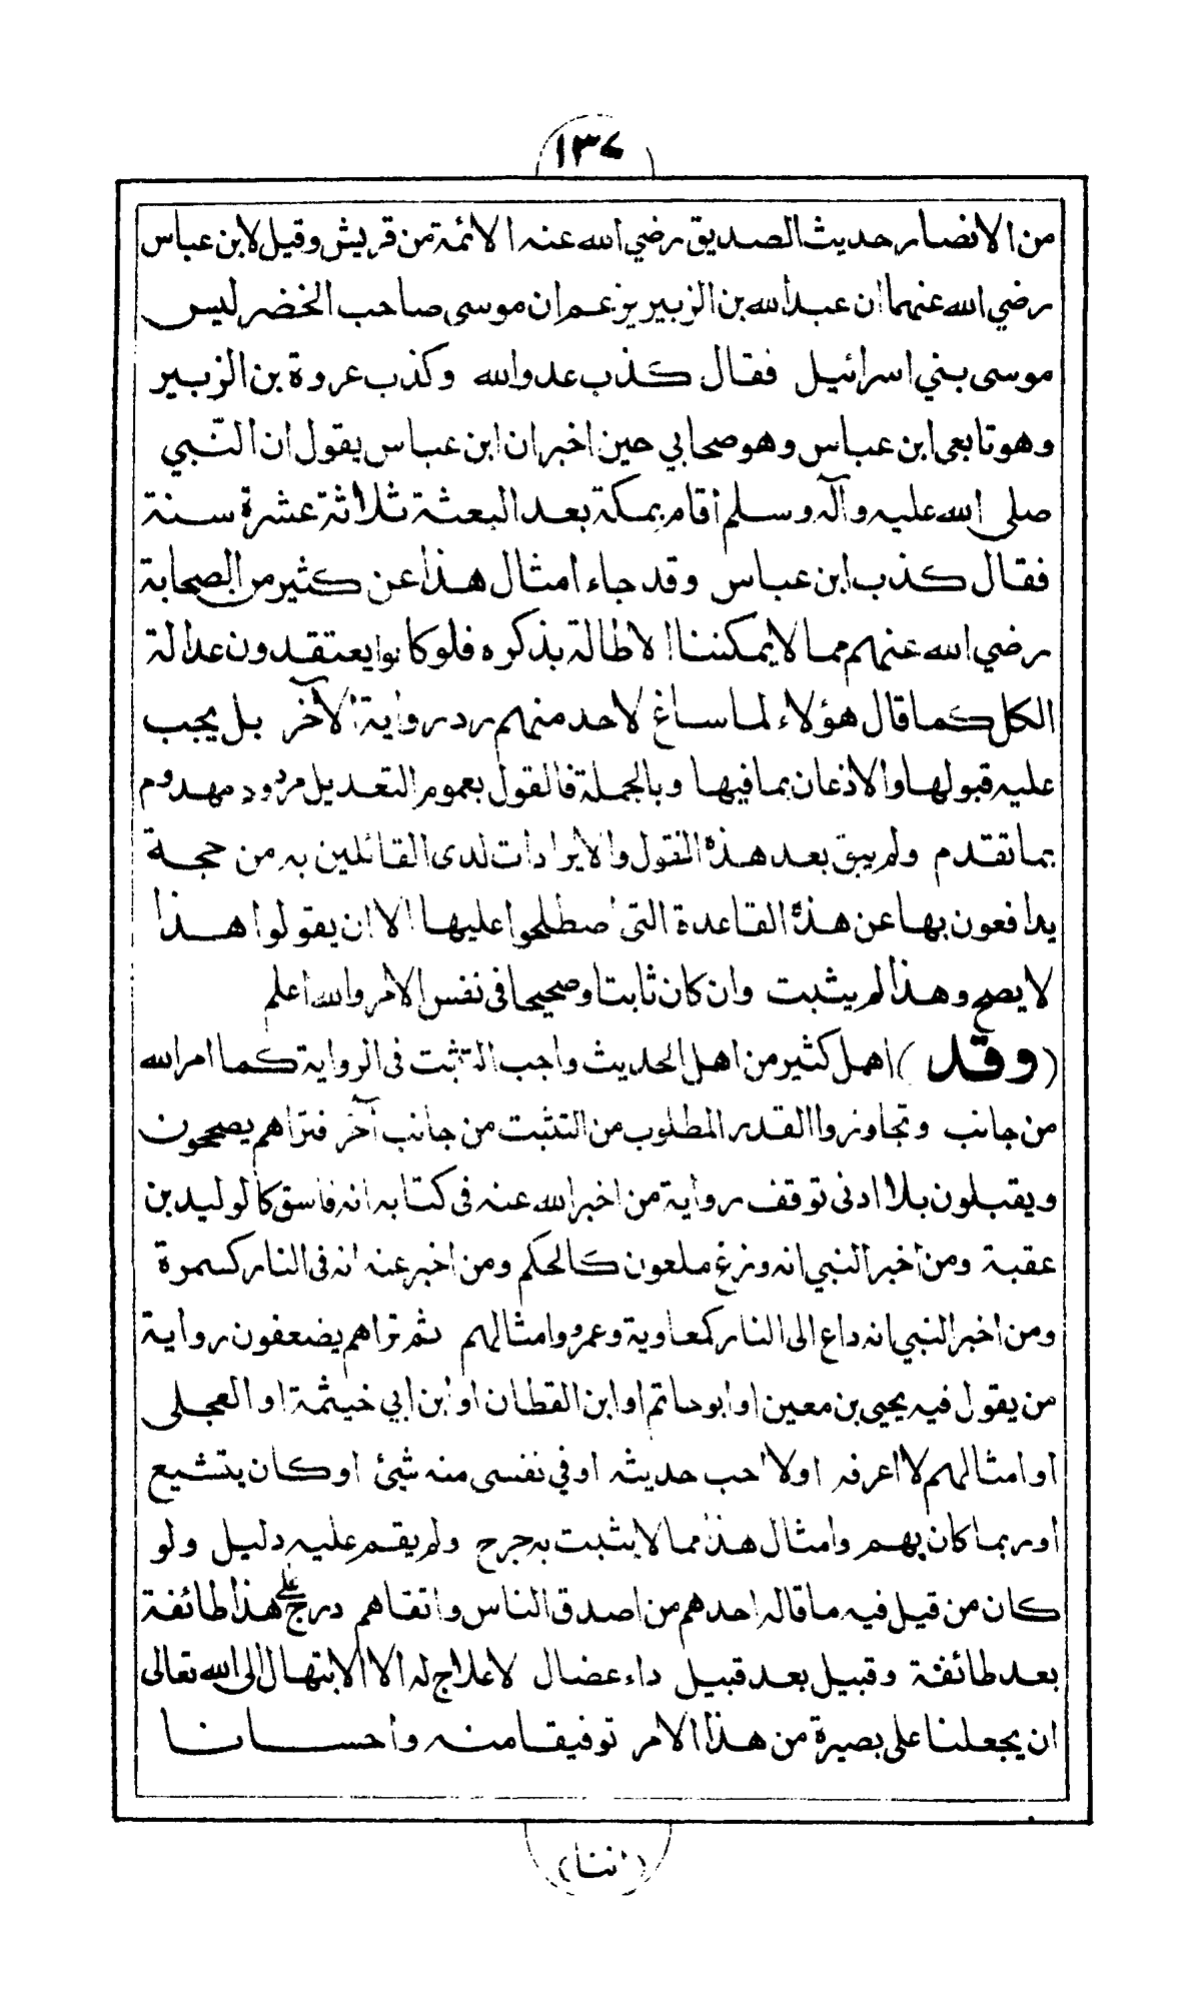 ١٣٤
من الانصار حديث الصديق رضي الله عنه الائمة من قريش وقيل لابن عباس
رضي الله عنهما ان عبدالله بن الزبير يزعم ان موسى صاحب الخضر ليس
موسى بني اسرائيل فقال كذب عدو الله وكذب عروة بن الزبير
وهو تابعي ابن عباس وهو صحابي حين اخبر ان ابن عباس يقول ان النّبي
صلى الله عليه وآله وسلم أقام بمكة بعد البعثة ثلاثة عشرة سنة
فقال كذب ابن عباس وقد جاء امثال هذا عن كثير من الصحابة
رضي الله عنهم مما لا يمكننا الاطالة بذكره فلو كانوا يعتقدون عدالة
الكل كما قال هؤلاء لما ساغ لاحد منهم رد رواية الآخر بل يجب
عليه قبولها والاذعان بما فيها وبالجملة فالقول بعموم التعديل مردود مهدوم
بما تقدم ولم يبق بعد هذه النقول والايرادات لدى القائلين به من حجة
يدافعون بها عن هذه القاعدة التى اصطلحوا عليها الا ان يقولوا هذا
لا يصح وهذا لم يثبت وان كان ثابتا وصحيحا فى نفس الامر والله اعلم
(وقد) اهمل كثير من اهل الحديث واجب التثبت فى الرواية كما امر الله
من جانب وتجاوزوا القدر المطلوب من التثبت من جانب آخر فتراهم يصححون
ويقبلون بلا ادنى توقف رواية من اخبر الله عنه فى كتابه انه فاسق كالوليد بن
عقبة ومن اخبر النبي انه وزغ ملعون كالحكم ومن اخبر عنه انه فى النار كسمرة
ومن اخبر النبي انه داع الى النار كمعاوية وعمرو وامثالهم ثم تراهم يضعفون رواية
من يقول فيه يحيى بن معين او ابو حاتم او ابن القطان او ابن ابي خيثمة او العجلى
او امثالهم لا اعرفه او لا احب حديثه او في نفسى منه شئ او كان يتشيع
او ربما كان يهم وامثال هذا مما لا يثبت به جرح ولم يقم عليه دليل ولو
كان من قيل فيه ما قاله احدهم من اصدق الناس واتقاهم درج على هذا طائفة
بعد طائفة وقبيل بعد قبيل داء عضال لا علاج له الا الابتهال الى الله تعالى
ان يجعلنا على بصيرة من هذا الامر توفيقا منه واحسانا